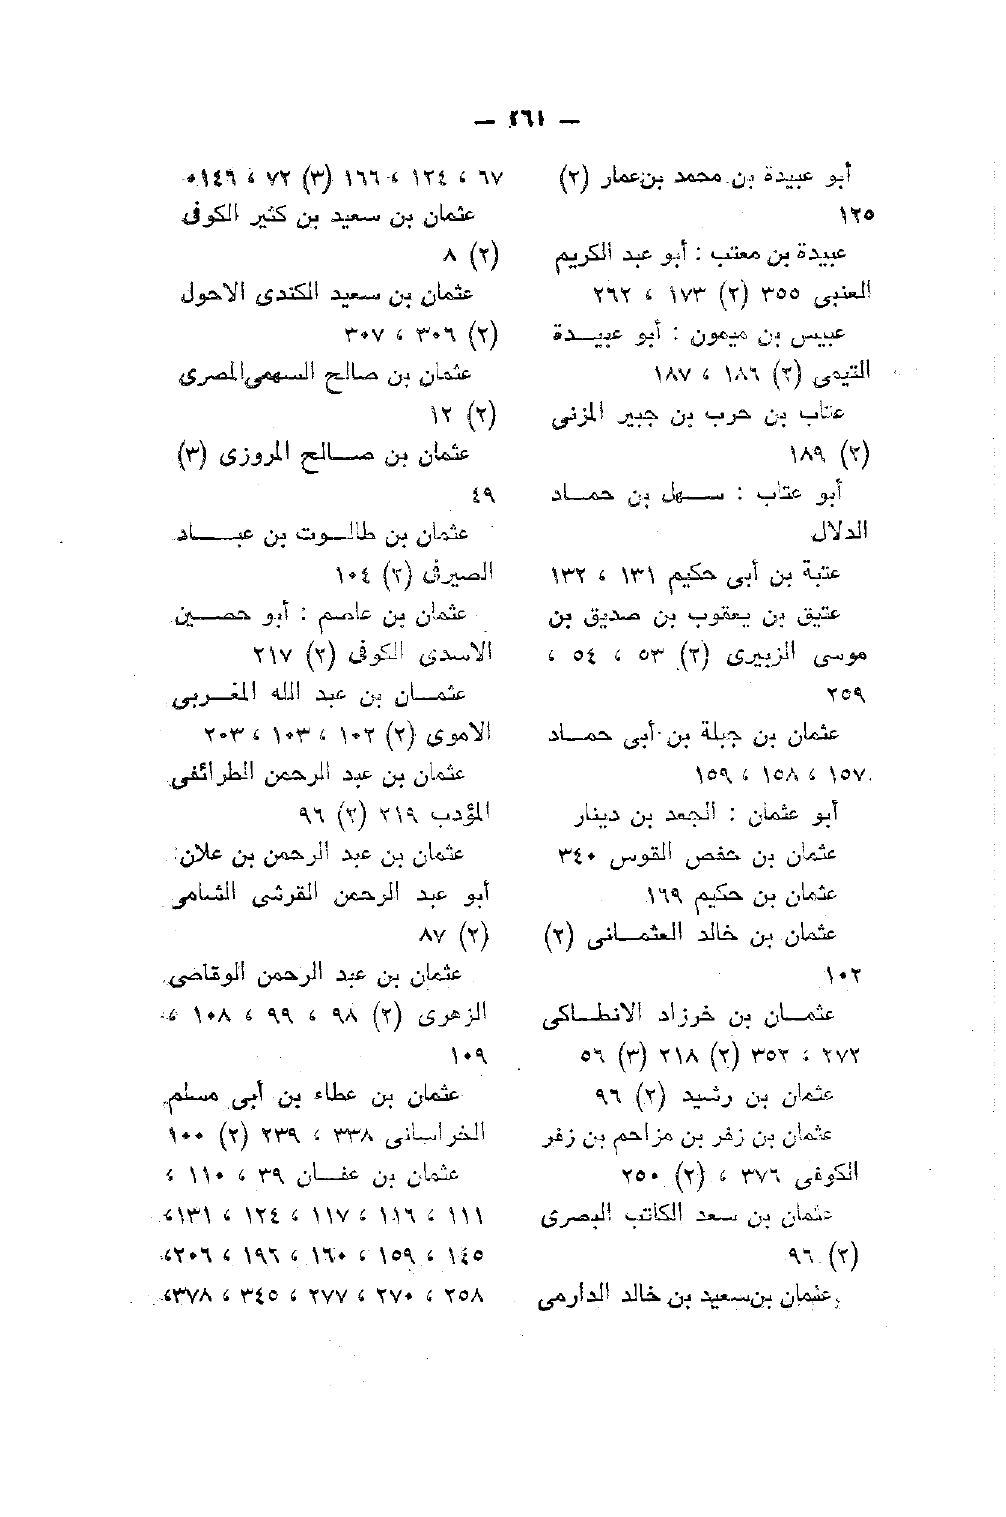 — ٢٦١ —
أبو عبيدة بن محمد بن عمار (٢)
١٢٥
عبيدة بن معتب : أبو عبد الكريم
العنبى ٣٥٥ (٢) ١٧٣ ، ٢٦٢
عبيس بن ميمون : أبو عبيـــدة
التيمى (٢) ١٨٦ ، ١٨٧
عتاب بن حرب بن جبير المزنى
(٢) ١٨٩
أبو عتاب : ســـهل بن حمـــاد
الدلال
عتبة بن أبى حكيم ١٣١ ، ١٣٢
عتيق بن يعقوب بن صديق بن
موسى الزبيرى (٢) ٥٣ ، ٥٤ ،
٢٥٩
عثمان بن جبلة بن أبى حمـــاد
١٥٧ ، ١٥٨ ، ١٥٩
أبو عثمان : الجعد بن دينار
عثمان بن حفص القوس ٣٤٠
عثمان بن حكيم ١٦٩
عثمان بن خالد العثمـــانى (٢)
١٠٢
عثمـــان بن خرزاد الانطـــاكى
٢٧٢ ، ٣٥٢ (٢) ٢١٨ (٣) ٥٦
عثمان بن رشيد (٢) ٩٦
عثمان بن زفر بن مزاحم بن زفر
الكوفى ٣٧٦ ، (٢) ٢٥٠
عثمان بن سعد الكاتب البصرى
(٢) ٩٦
عثمان بن سعيد بن خالد الدارمى
٦٧ ، ١٢٤ ، ١٦٦ (٣) ٧٢ ، ١٤٦.
عثمان بن سعيد بن كثير الكوفى
(٢) ٨
عثمان بن سعيد الكندى الاحول
(٢) ٣٠٦ ، ٣٠٧
عثمان بن صالح السهمى المصرى
(٢) ١٢
عثمان بن صـــالح المروزى (٣)
٤٩
عثمان بن طالـــوت بن عبـــاد
الصيرفى (٢) ١٠٤
عثمان بن عاصم : أبو حصـــين
الاسدى الكوفى (٢) ٢١٧
عثمـــان بن عبد الله المغـــربى
الاموى (٢) ١٠٢ ، ١٠٣ ، ٢٠٣
عثمان بن عبد الرحمن الطرائفى
المؤدب ٢١٩ (٢) ٩٦
عثمان بن عبد الرحمن بن علان :
أبو عبد الرحمن القرشى الشامى
(٢) ٨٧
عثمان بن عبد الرحمن الوقاصى
الزهرى (٢) ٩٨ ، ٩٩ ، ١٠٨ ،
١٠٩
عثمان بن عطاء بن أبى مسلم
الخراسانى ٣٣٨ ، ٢٣٩ (٢) ١٠٠
عثمان بن عفـــان ٣٩ ، ١١٠ ،
١١١ ، ١١٦ ، ١١٧ ، ١٢٤ ، ١٣١،
١٤٥ ، ١٥٩ ، ١٦٠ ، ١٩٦ ، ٢٠٦،
٢٥٨ ، ٢٧٠ ، ٢٧٧ ، ٣٤٥ ، ٣٧٨،